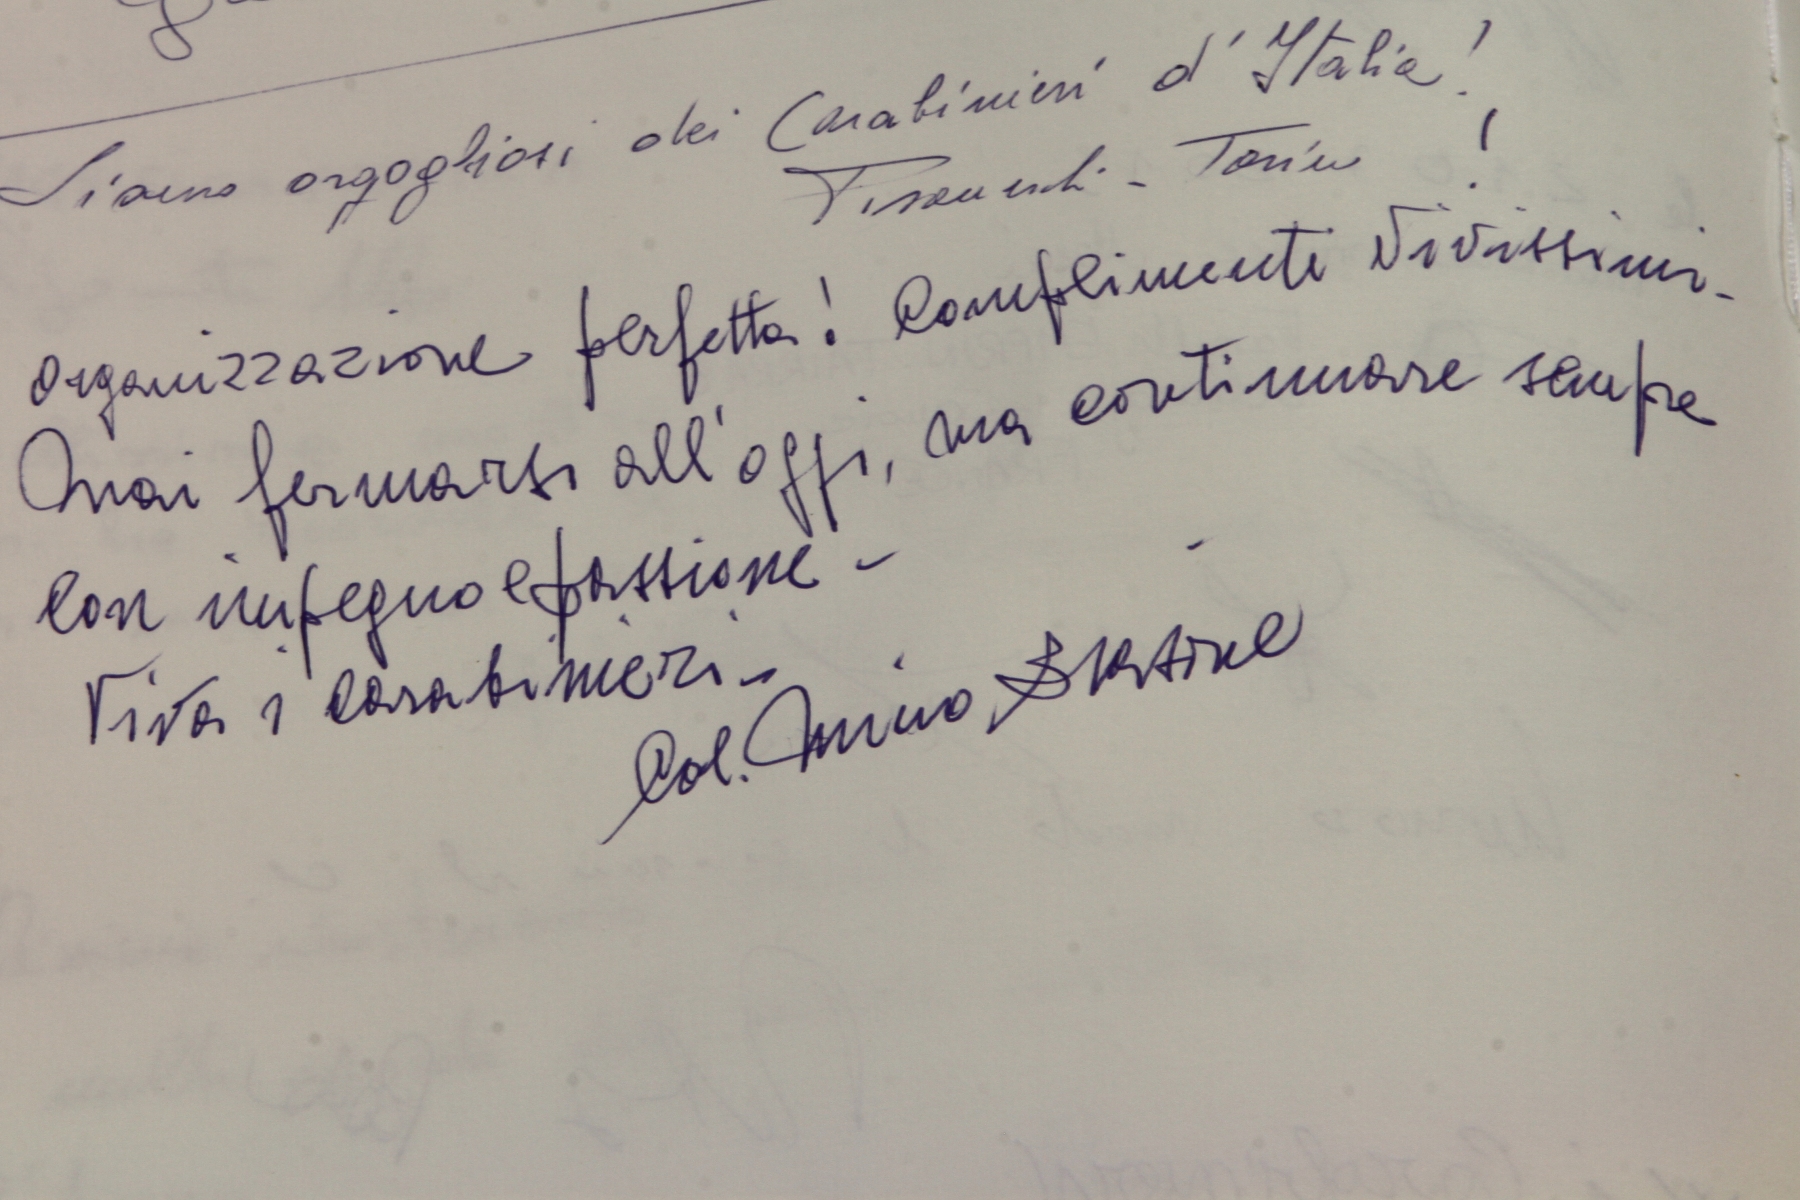 Siamo orgogliosi dei Carabinieri d'Italia!
- Torino !
organizzazione perfetta! Complimenti vivissimi.
Mai fermarsi all'oggi, ma continuare sempre
con impegno e passione -
Viva i carabinieri -
Col. Nino